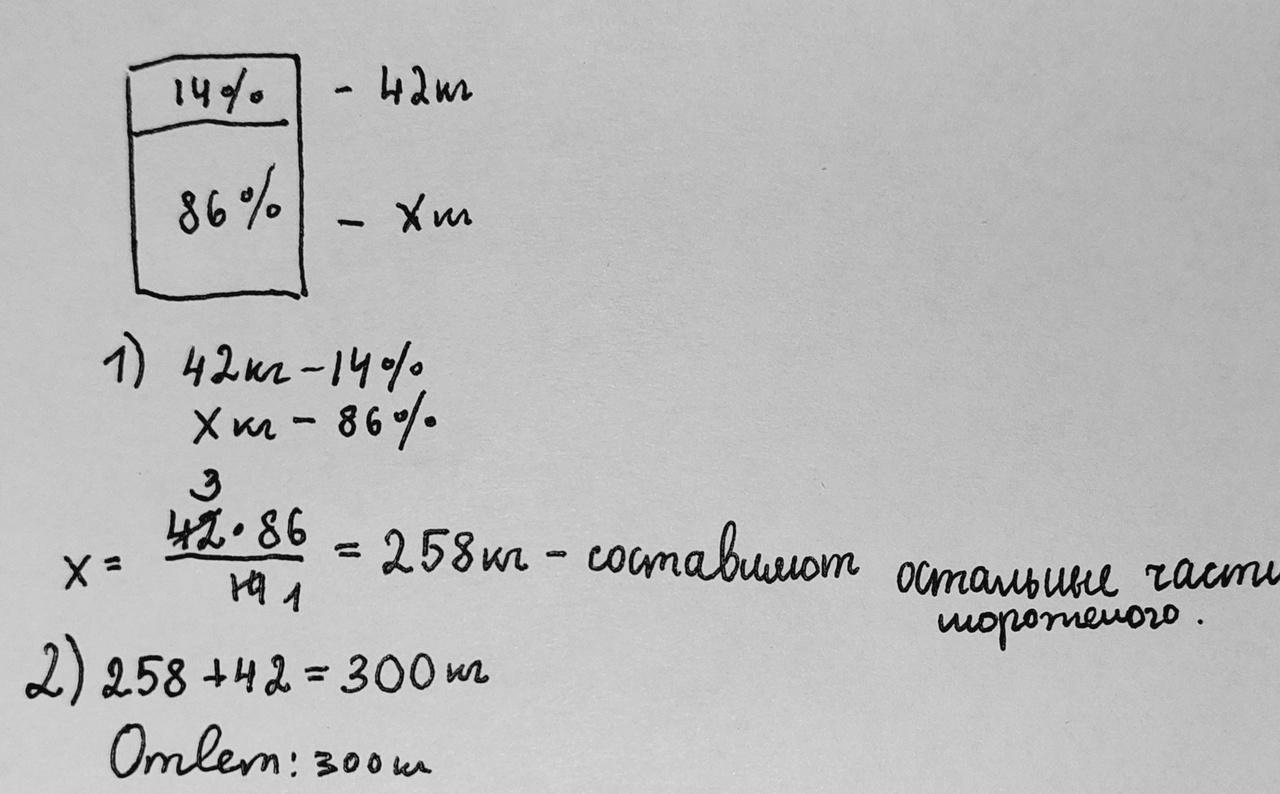 14% - 42кг
86% - х кг
1) 42кг - 14%
х кг - 86%
3
42 · 86
х = = 258кг - составляют остальные части
14 1
мороженого.
2) 258 + 42 = 300 кг
Ответ: 300 кг